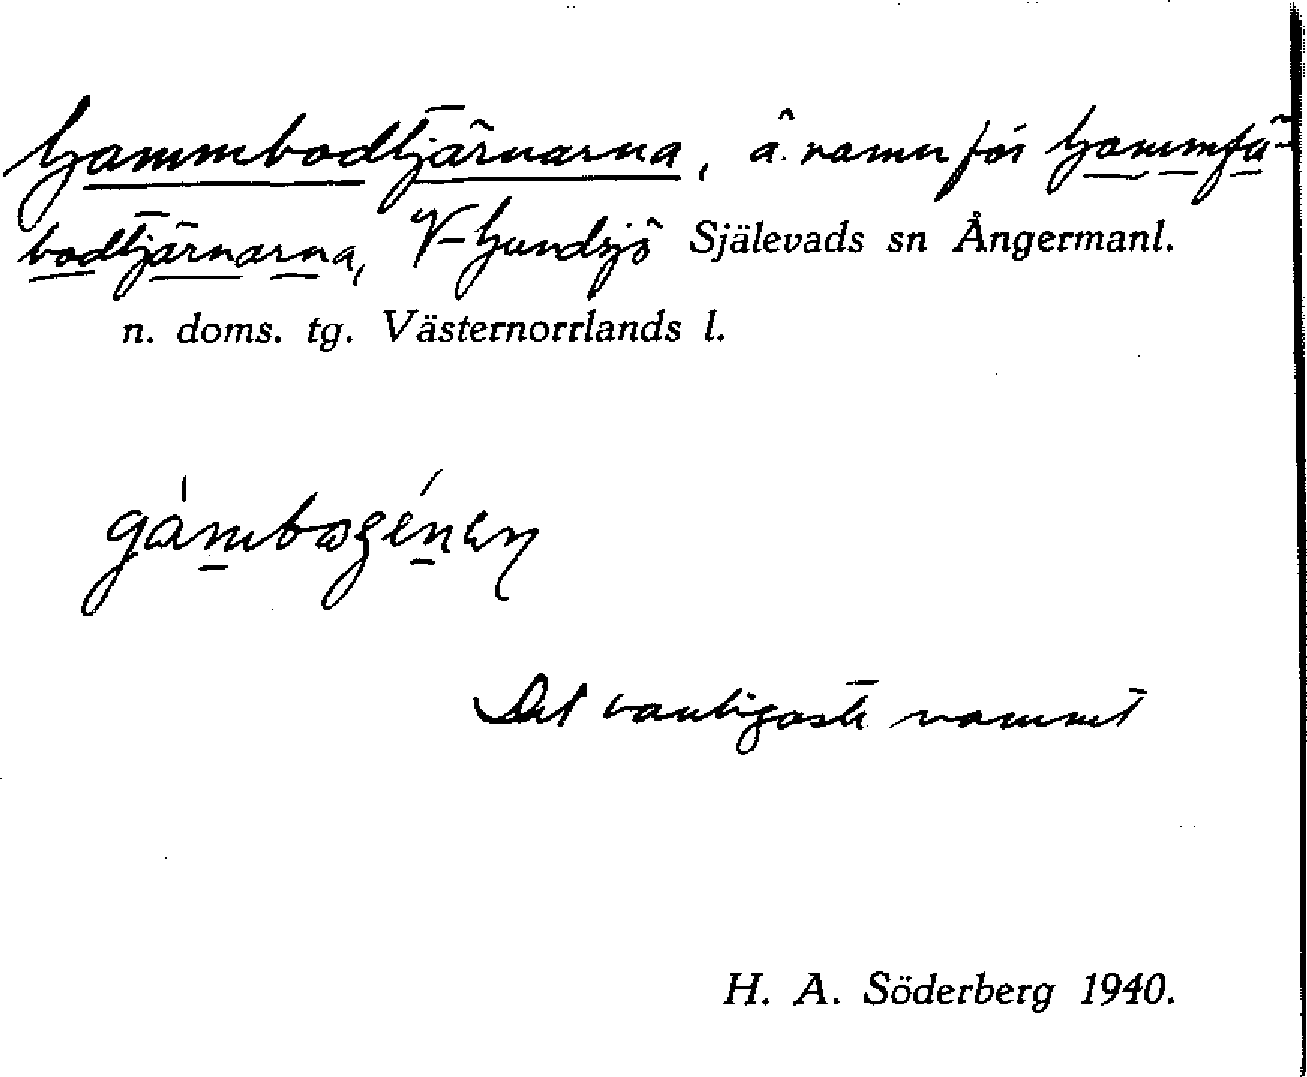 Gammbodtjärnarna, å. namn för Gammfä-
bodtjärnarna, V-Gundsjö Själevads sn Ångermanl.
n. doms. tg. Västernorrlands l.
Det vanligaste namnet
H. A. Söderberg 1940.